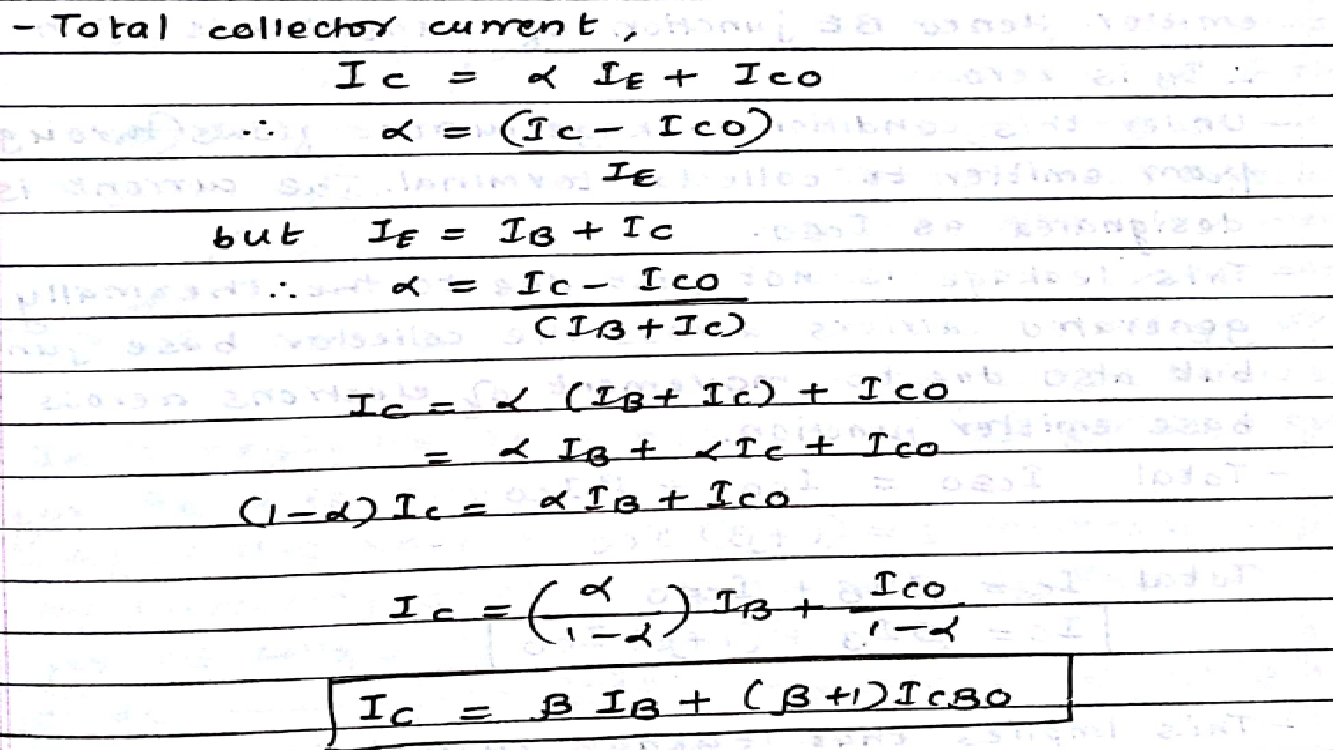 - Total collector current,
IC = α IE + ICO
∴ α = (IC - ICO)
IE
but IE = IB + IC
∴ α = IC - ICO
(IB + IC)
IC = α (IB + IC) + ICO
= α IB + αIC + ICO
(1-α) IC = α IB + ICO
IC = (α / 1-α) IB + ICO / 1-α
IC = β IB + (β+1) ICBO